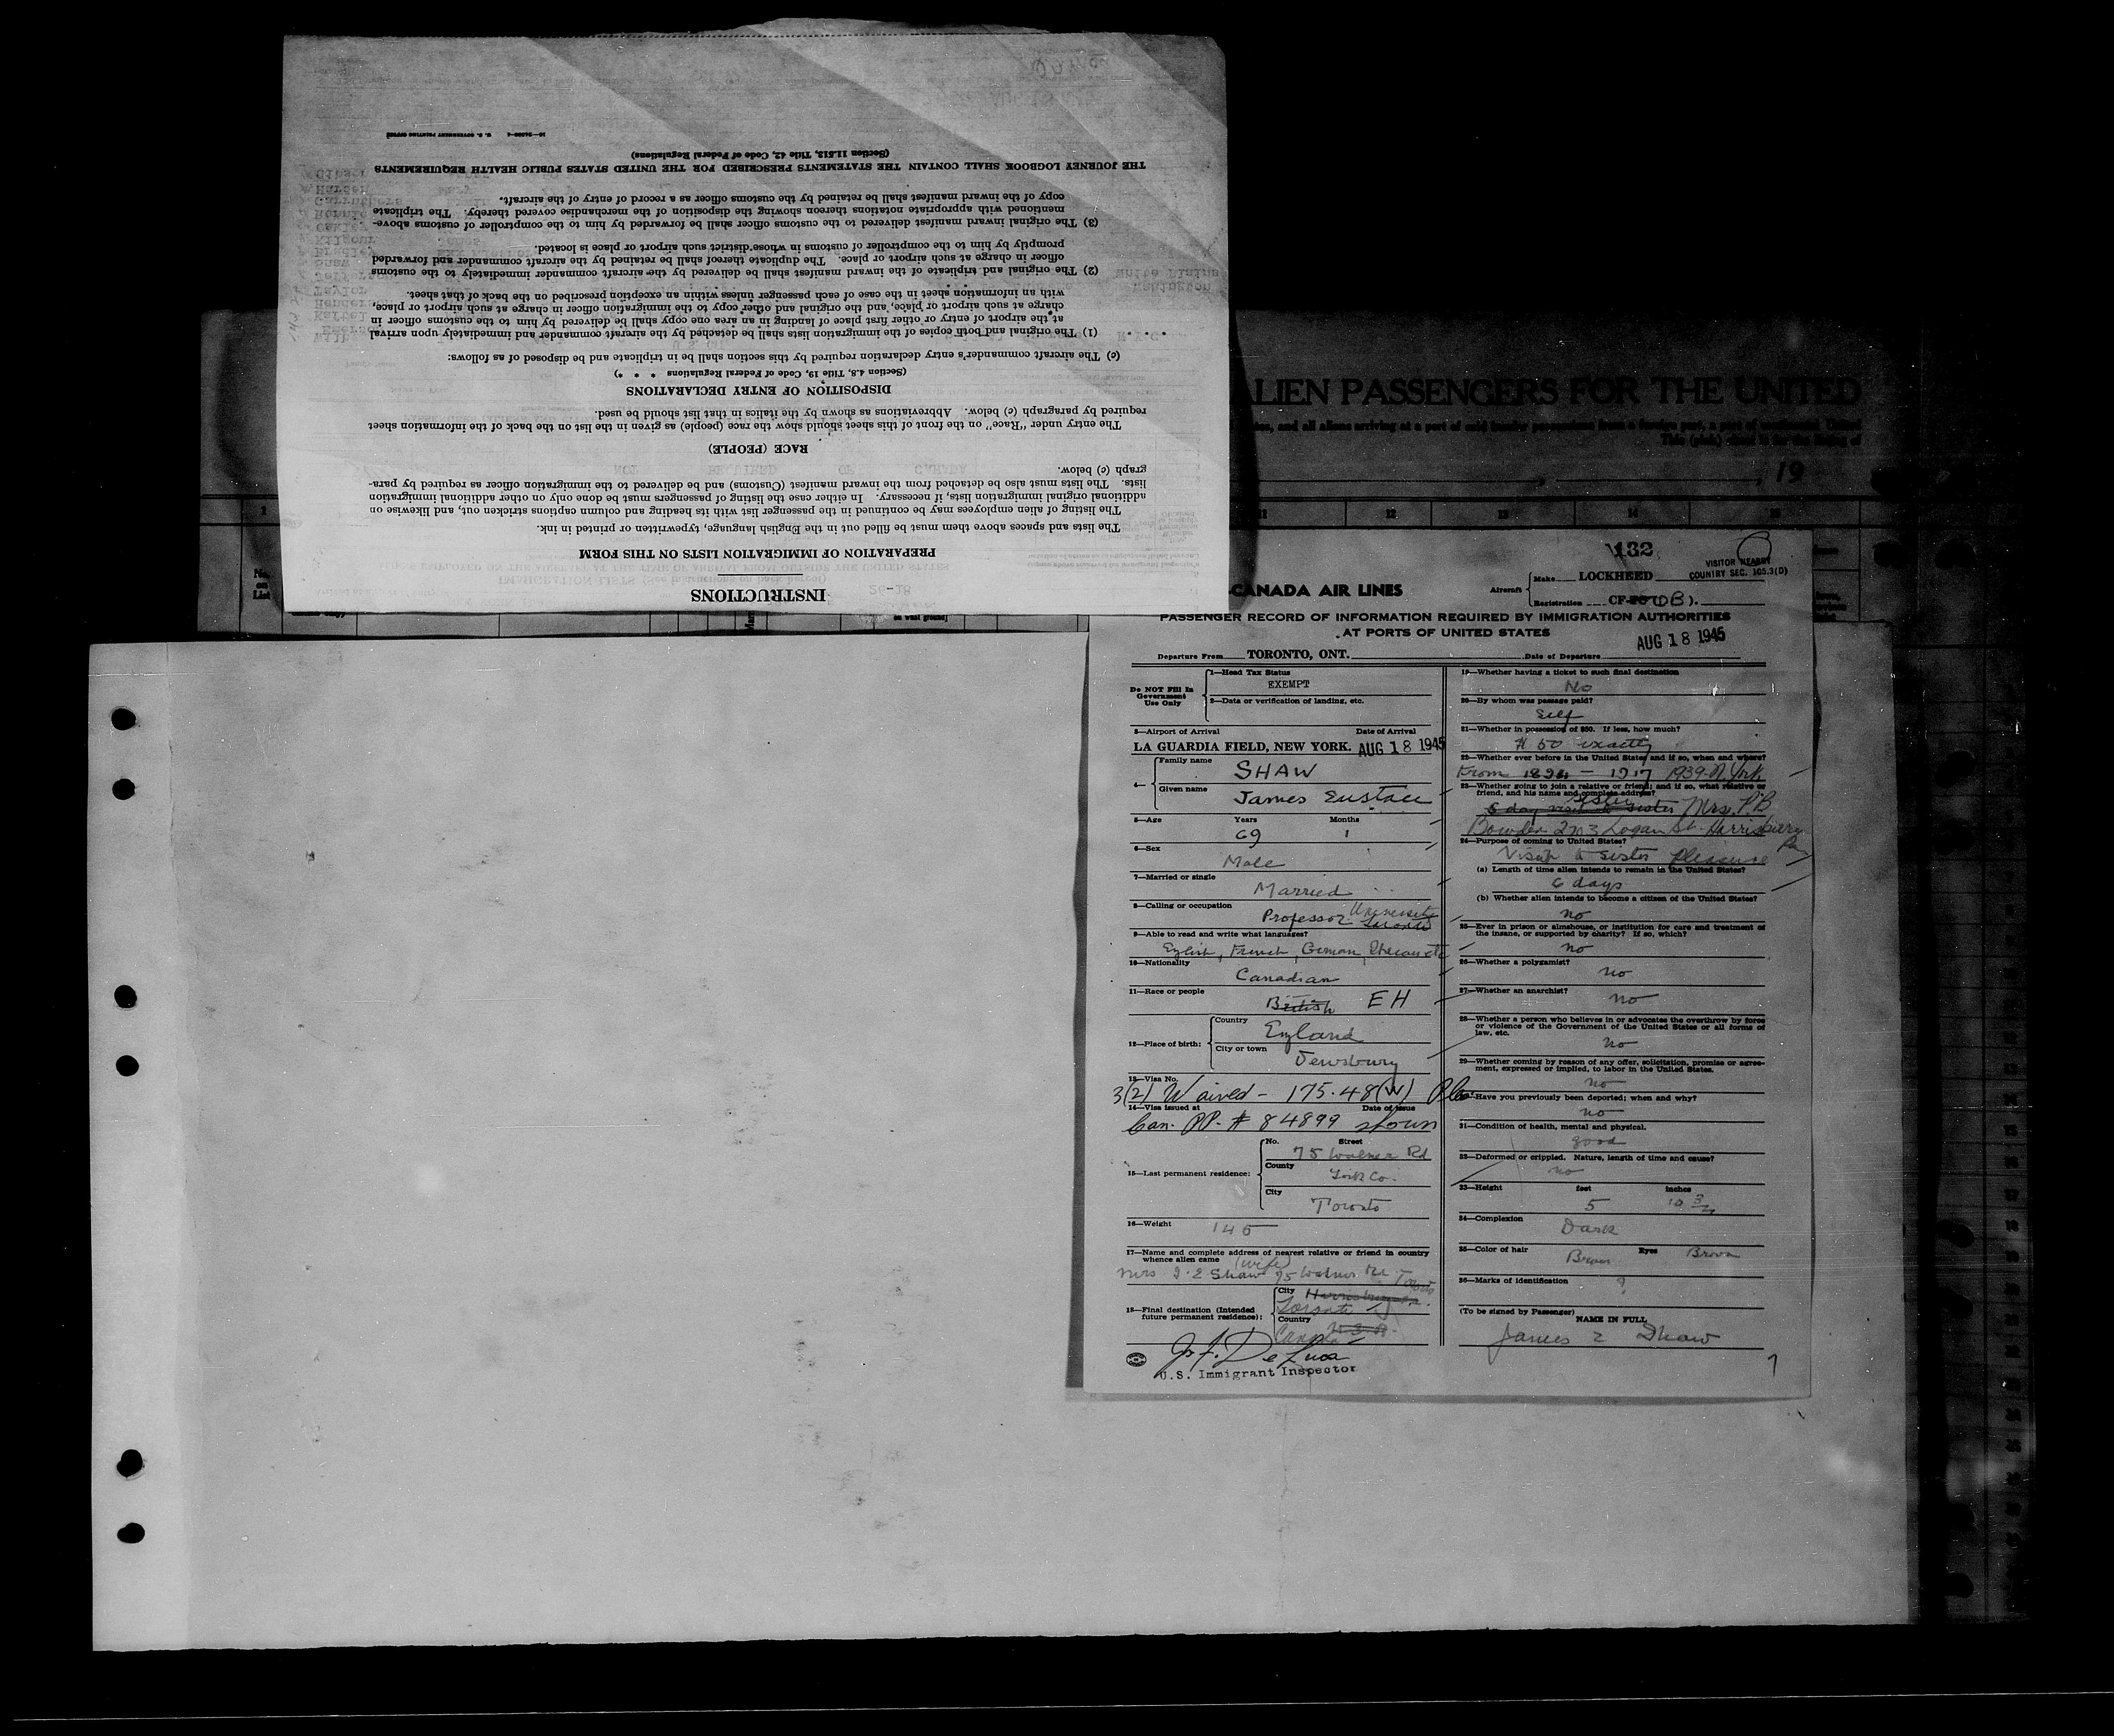 INSTRUCTIONS
PREPARATION OF IMMIGRATION LISTS ON THIS FORM
The lists and spaces above them must be filled out in the English language, typewritten or printed in ink.
The listing of alien employees may be continued in the passenger list with its heading and column captions stricken out, and likewise on
additional original immigration lists, if necessary. In either case the listing of passengers must be done only on other additional immigration
lists. The lists must also be detached from the inward manifest (Customs) and be delivered to the immigration officer as required by para-
graph (c) below.
RACE (PEOPLE)
The entry under "Race" on the front of this sheet should show the race (people) as given in the list on the back of the information sheet
required by paragraph (c) below. Abbreviations as shown by the italics in that list should be used.
DISPOSITION OF ENTRY DECLARATIONS
(Section 4.8, Title 19, Code of Federal Regulations * * *)
(c) The aircraft commander's entry declaration required by this section shall be in triplicate and be disposed of as follows:
(1) The original and both copies of the immigration lists shall be detached by the aircraft commander and immediately upon arrival
at the airport of entry or other first place of landing in an area one copy shall be delivered by him to the customs officer in
charge at such airport or place, and the original and other copy to the immigration officer in charge at such airport or place,
with an information sheet in the case of each passenger unless within an exception prescribed on the back of that sheet.
(2) The original and triplicate of the inward manifest shall be delivered by the aircraft commander immediately to the customs
officer in charge at such airport or place. The duplicate thereof shall be retained by the aircraft commander and forwarded
promptly by him to the comptroller of customs in whose district such airport or place is located.
(3) The original inward manifest delivered to the customs officer shall be forwarded by him to the comptroller of customs above-
mentioned with appropriate notations thereon showing the disposition of the merchandise covered thereby. The triplicate
copy of the inward manifest shall be retained by the customs officer as a record of entry of the aircraft.
THE JOURNEY LOGBOOK SHALL CONTAIN THE STATEMENTS PRESCRIBED FOR THE UNITED STATES PUBLIC HEALTH REQUIREMENTS
(Section 11.513, Title 42, Code of Federal Regulations)
U. S. GOVERNMENT PRINTING OFFICE
ALIEN PASSENGERS FOR THE UNITED
, and all aliens arriving at a port of said insular possessions from a foreign port, a port of continental United
This (pink) sheet is for the listing of
, 19
1 11 12 13 14 15
No. on List
132
VISITOR
COUNTRY SEC. 105.3(D)
CANADA AIR LINES
Aircraft
Make LOCKHEED
Registration CF-
PASSENGER RECORD OF INFORMATION REQUIRED BY IMMIGRATION AUTHORITIES
AT PORTS OF UNITED STATES
AUG 18 1945
Departure From TORONTO, ONT. Date of Departure
Do NOT Fill In Government Use Only
1—Head Tax Status
EXEMPT
2—Data or verification of landing, etc.
3—Airport of Arrival Date of Arrival
LA GUARDIA FIELD, NEW YORK. AUG 18 1945
4— Family name SHAW
Given name James Eustace
5—Age Years Months
69 1
6—Sex
Male
7—Married or single
Married
8—Calling or occupation
Professor University Toronto
9—Able to read and write what languages?
English, French, German,
10—Nationality
Canadian
11—Race or people
British EH
12—Place of birth: Country England
City or town Dewsbury
13—Visa No.
3(2) Waived - 175.48(W)
14—Visa issued at Date of issue
Can. PP. # 84899 shown
15—Last permanent residence: No. Street
75 Walmer Rd
County
York Co.
City
Toronto
16—Weight 145
17—Name and complete address of nearest relative or friend in country
whence alien came (wife)
Mrs J. E Shaw 75 Walmer Rd Toronto
18—Final destination (Intended future permanent residence): City Harrisburg
Toronto
Country U.S.A.
Canada
J. F. De Luca
U.S. Immigrant Inspector
19—Whether having a ticket to such final destination
No
20—By whom was passage paid?
Self
21—Whether in possession of $50. If less, how much?
$ 50 exactly
22—Whether ever before in the United States and if so, when and where?
From 1894 - 1917 1939 N. York
23—Whether going to join a relative or friend; and if so, what relative or
friend, and his name and complete address?
6 day visit to sister Sister Mrs. P.B
Bowder Logan St. Harrisburg Pa
24—Purpose of coming to United States?
Visit to sister Pleasure
(a) Length of time alien intends to remain in the United States?
6 days
(b) Whether alien intends to become a citizen of the United States?
no
25—Ever in prison or almshouse, or institution for care and treatment of
the insane, or supported by charity? If so, which?
no
26—Whether a polygamist?
no
27—Whether an anarchist?
no
28—Whether a person who believes in or advocates the overthrow by force
or violence of the Government of the United States or all forms of
law, etc.
no
29—Whether coming by reason of any offer, solicitation, promise or agree-
ment, expressed or implied, to labor in the United States.
no
Have you previously been deported; when and why?
no
31—Condition of health, mental and physical.
good
32—Deformed or crippled. Nature, length of time and cause?
no
33—Height feet inches
5 10 3/4
34—Complexion
Dark
35—Color of hair Brown Eyes Brown
36—Marks of identification
?
(To be signed by Passenger)
NAME IN FULL
James E Shaw
7